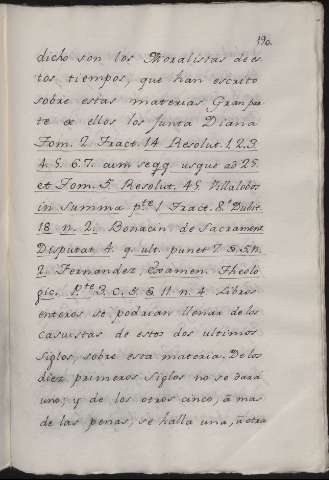 190.
dicho son los Moralistas de es
tos tiempos, que han escrito
sobre estas materias, Gran par
te de ellos los junta Diana
Tom. 2 Tract. 14 Resolut. 1. 2. 3.
4. 5. 6. 7. cum seqq usque ad 25
et Tom. 5. Resolut. 45 Villalobos
in Summa pte 1 Tract. 8. Dubit.
18 n. 2. Bonacin de Sacrament
Disputat. 4. q. ult. punct 7. § 5. n.
2. Fernandez, Examen. Theolo
gic. pte 3. c. 5. § 11 n. 4. Libros
enteros se podrian llenar de los
casuistas de estos dos ultimos
siglos, sobre esta materia. De los
diez primeros siglos no se dará
uno; y de los otros cinco, á mas
de las penas, se halla una, ú otra